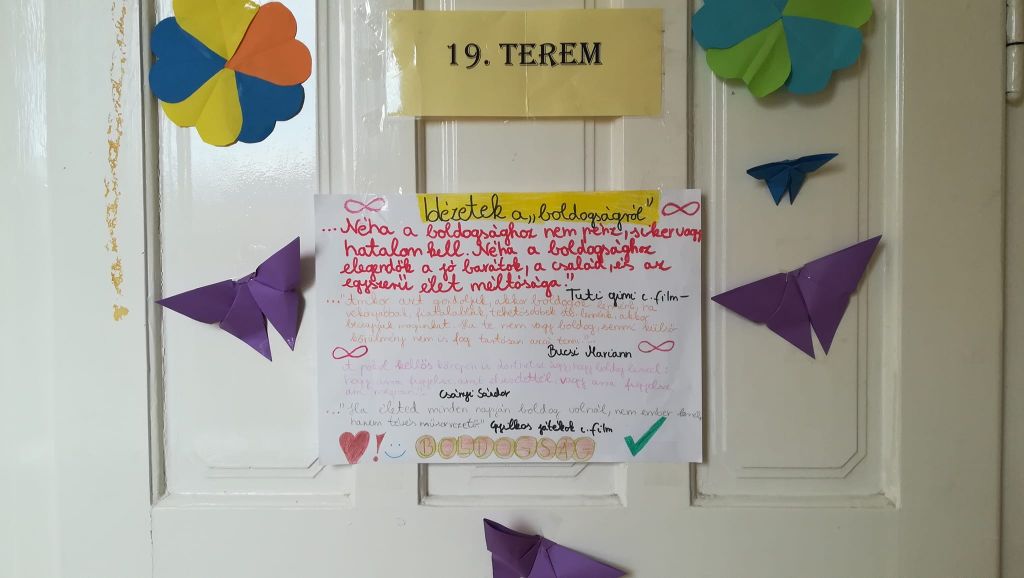 19. TEREM
Idézetek a „boldogságról"
...Néha a boldogsághoz nem pénz, siker vagy
hatalom kell. Néha a boldogsághoz
elegendők a jó barátok, a család, és az
egyszerű élet méltósága!"
Tuti gimi c. film-
..."Amikor azt gondoljuk, akkor boldogok leszünk, ha
vékonyabbak, fiatalabbak, tehetősebbek stb. leszünk, akkor
becsapjuk magunkat. Ha te nem vagy boldog, semmi külső
körülmény nem is fog tartósan azzá tenni."
Bucsi Mariann
A pokol kellős közepén is dönthetsz úgy, hogy boldog leszel:
hogy arra figyelsz, amit elvesztettél, vagy arra figyelsz
ami megvan."
Csányi Sándor
..."Ha életed minden napján boldog volnál, nem ember lennél,
hanem tévés műsorvezető."
Gyilkos játékok c. film
BOLDOGSÁG